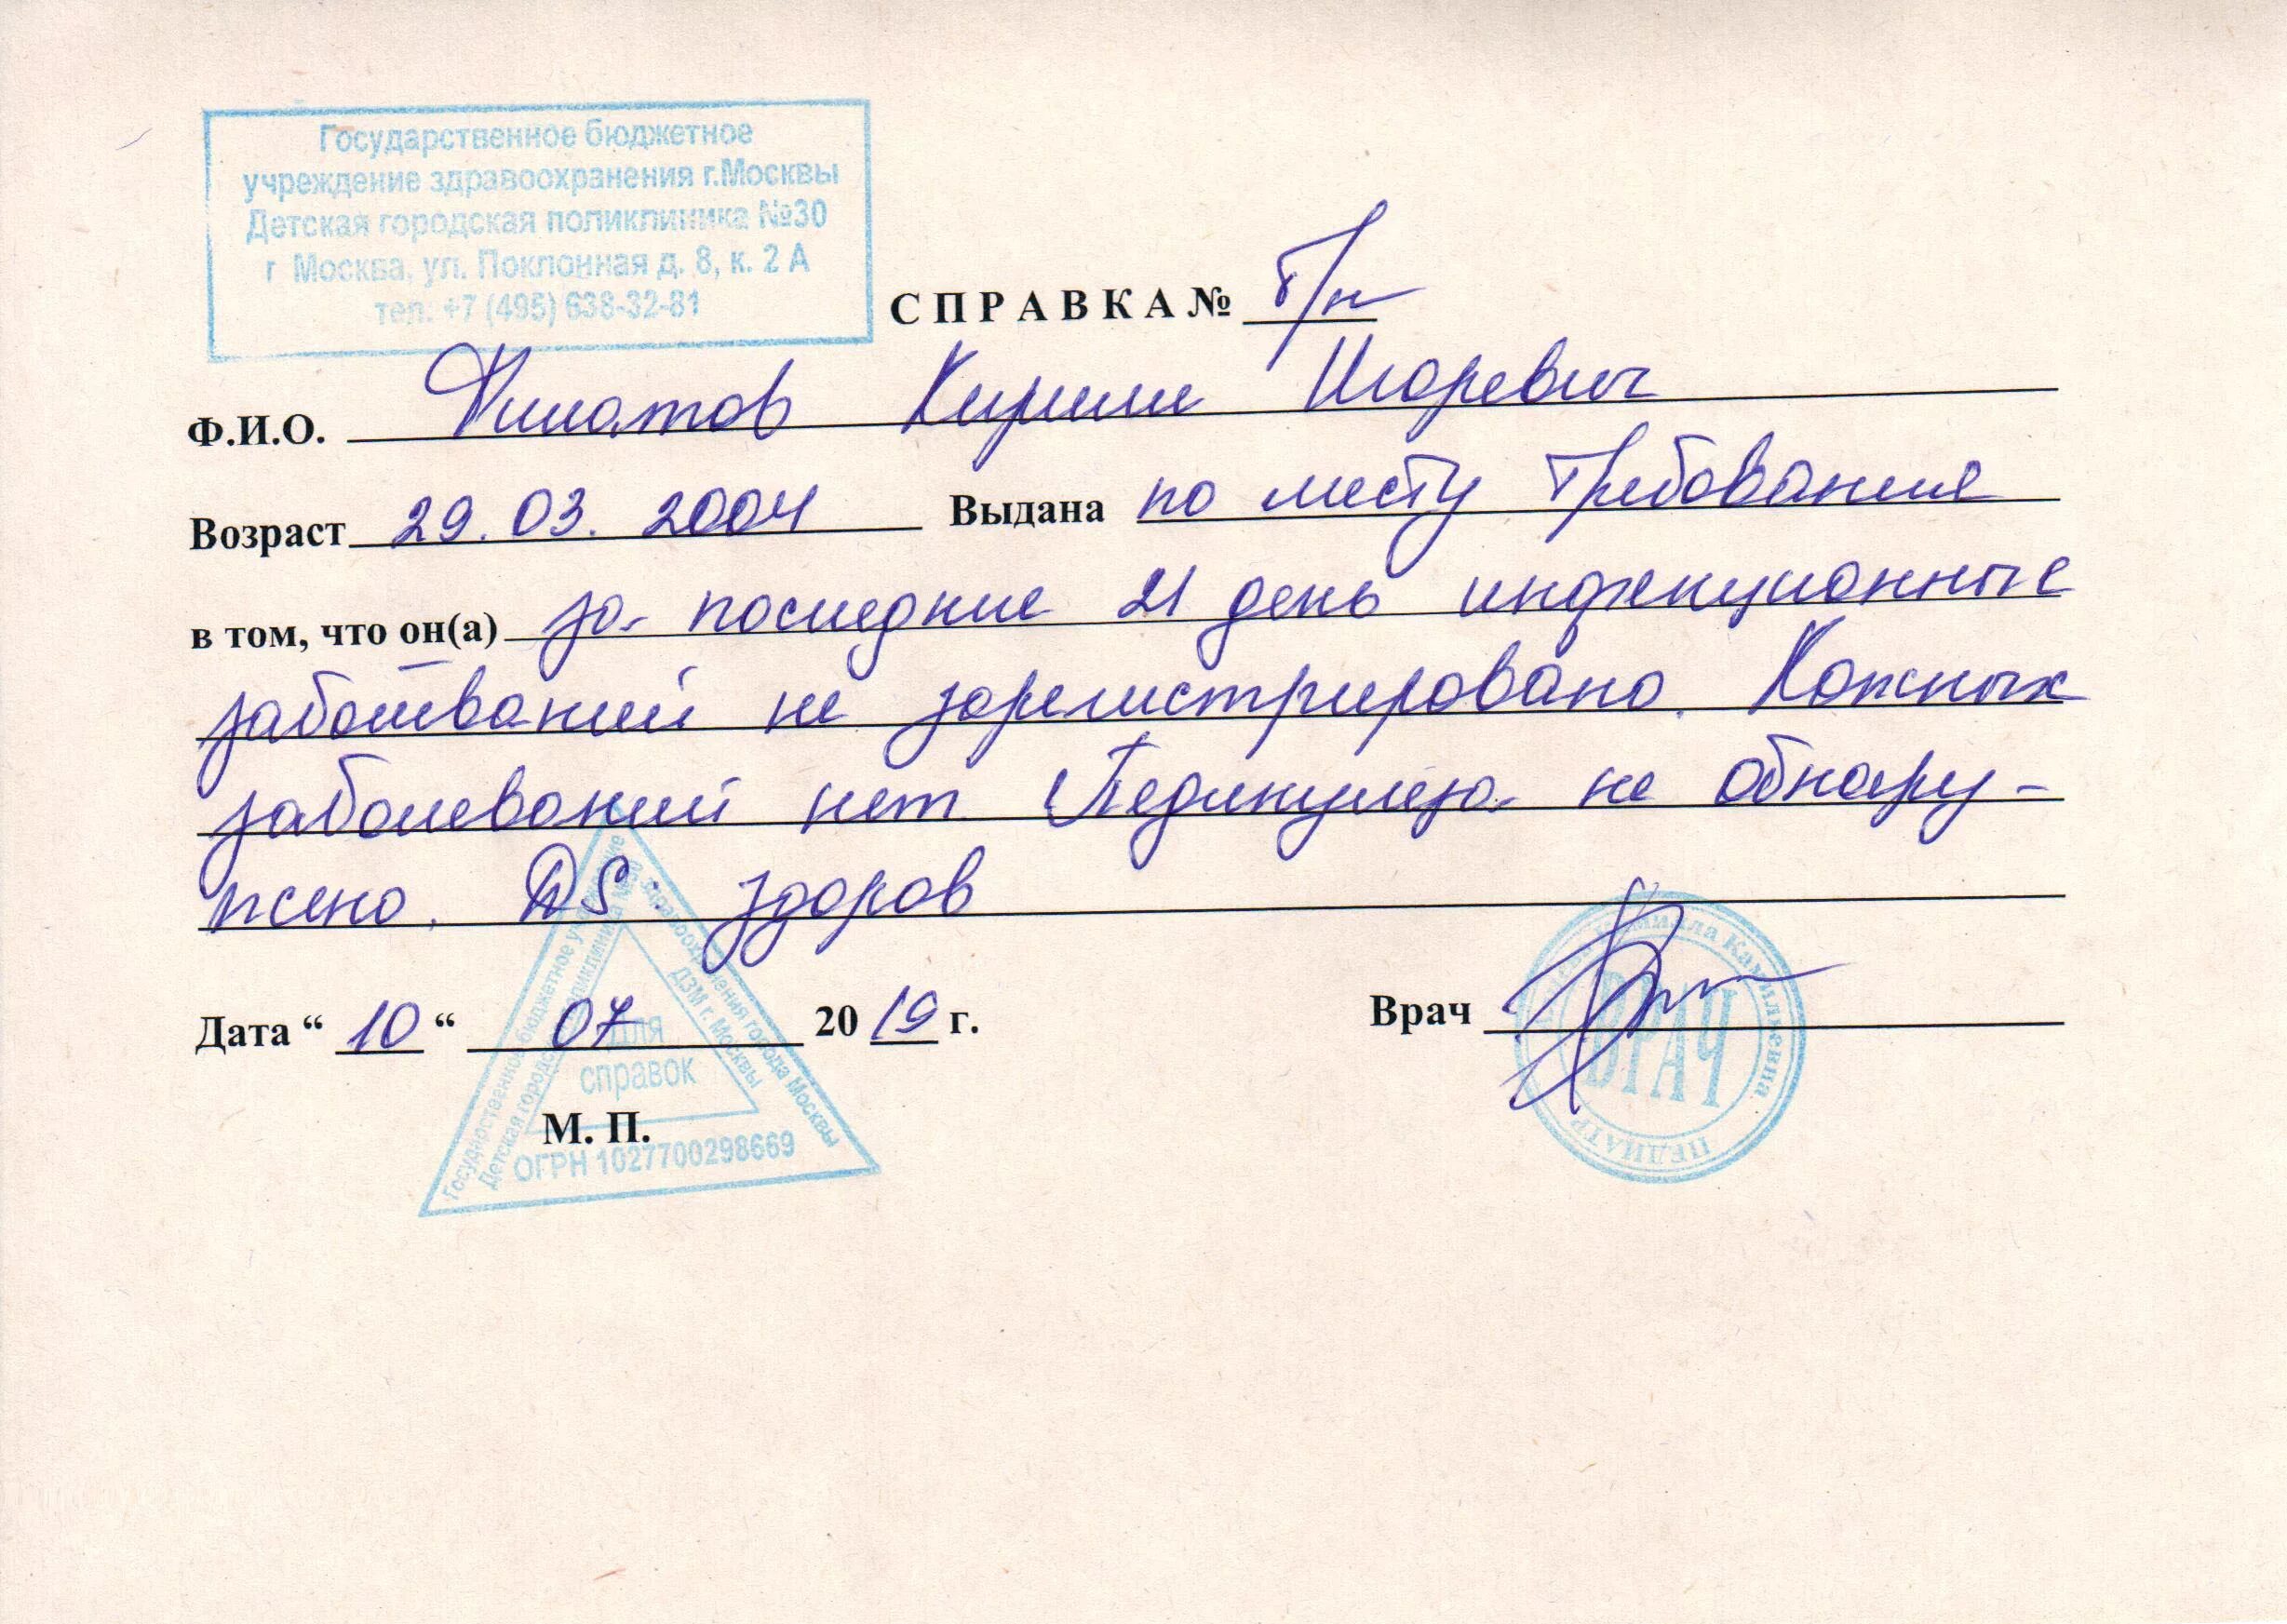 Государственное бюджетное
учреждение здравоохранения г.Москвы
Детская городская поликлиника №30
г Москва, ул. Поклонная д. 8, к. 2 А
тел. +7 (495) 638-32-81
СПРАВКА № б/н
Ф.И.О. Филатов Кирилл Игоревич
Возраст 29.03.2004 Выдана по месту требования
в том, что он(а) за последние 21 день инфекционные
заболеваний не зарегистрировано. Кожных
заболеваний нет. Педикулеза не обнару-
жено. DS: здоров
Дата “ 10 “ 07 20 19 г.
Врач
М. П.
Государственное бюджетное учреждение
здравоохранения города Москвы
Детская городская поликлиника №30
ДЗМ г. Москвы
для
справок
ОГРН 1027700298669
Камильевна
ВРАЧ
ПЕДИАТР